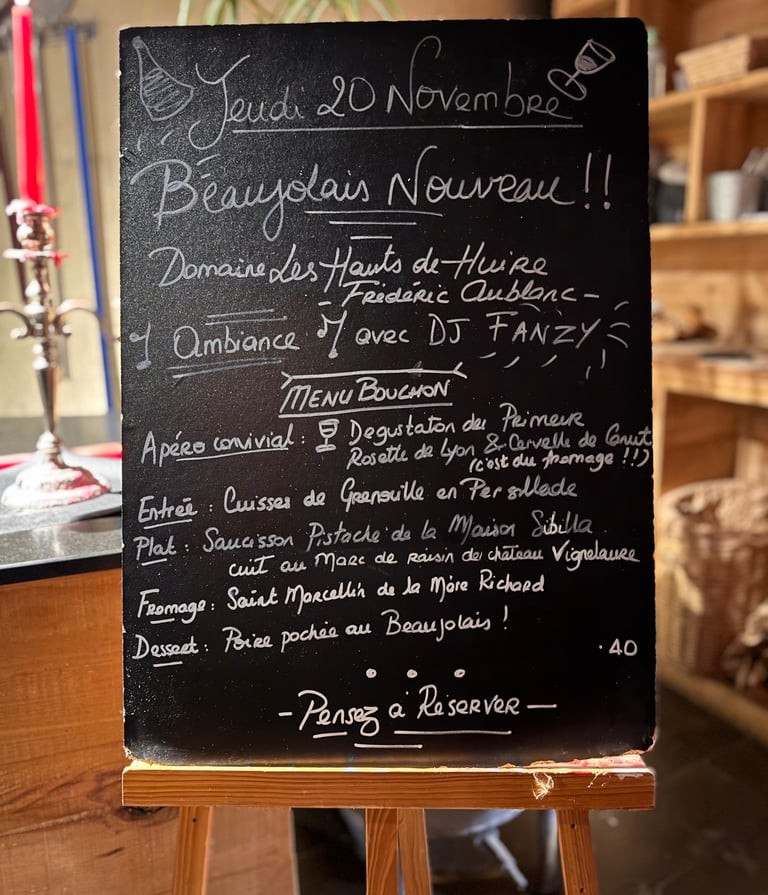 Jeudi 20 Novembre
Beaujolais Nouveau !!
Domaine Les Hauts de Huire
- Frédéric Aublanc -
Ambiance avec DJ FANZY
MENU BOUCHON
Apéro convivial : Degustation du Primeur
Rosette de Lyon & Cervelle de Canut
(c'est du fromage !!)
Entrée : Cuisses de Grenouille en Persillade
Plat : Saucisson Pistache de la Maison Sibilia
cuit au Marc de raisin de château Vignelaure
Fromage : Saint Marcellin de la Mère Richard
Dessert : Poire pochée au Beaujolais !
· 40
- Pensez à Réserver -